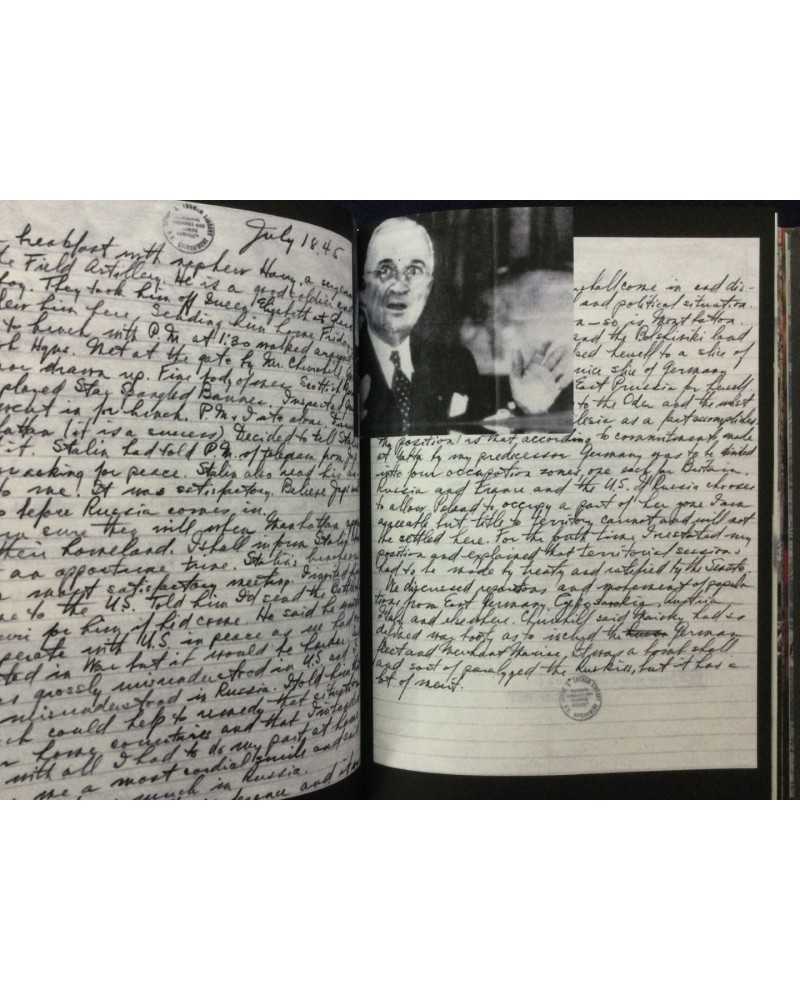 HARRY S. TRUMAN LIBRARY
July 18, 45
breakfast with nephew Harry, a sergeant
the Field Artillery. He is a good soldier and
boy. They took him off Queen Elizabeth at
flew him here. Sending him home Friday
to lunch with P.M. at 1:30 walked around
Hqrs. Met at the gate by Mr. Churchill
nor drawn up. Fine body of men Scottish
played Star Spangled Banner. Inspected
went in for lunch. P.M. & I ate alone.
hattan (it is a success) Decided to tell Stalin
it. Stalin had told P.M. of telegram from Jap
asking for peace. Stalin also read his
to me. It was satisfactory. Believe Japs will
before Russia comes in.
am sure they will when Manhattan
their homeland. I shall inform Stalin
an opportune time. Stalin's luncheon
a most satisfactory meeting. I invited
me to the U.S. Told him I'd send the Battleship
for him if he'd come. He said he wanted
operate with U.S. in peace as we had
ated in War but it would be harder.
was grossly misunderstood in U.S. and
misunderstood in Russia. I told him
ch could help to remedy that situation
r home countries and that I intended
with all I had to do my part at home
me a most cordial smile and said
much in Russia.
shall come in and dis-
and political situation.
n—so is Manhattan.
and the Bolshiviki land
sed herself to a slice of
nice slice of Germany
East Prussia for herself
to the Oder and the west
lesia as a fact accomplished.
My position is that according to commitments made
at Yalta by my predecessor Germany was to be
into four occupation zones, one each for Britain,
Russia and France and the U.S. If Russia chooses
to allow Poland to occupy a part of her zone I am
agreeable but title to territory cannot and will not
be settled here. For the fourth time I restated my
position and explained that territorial sessions
had to be made by treaty and ratified by the Senate.
We discussed reparations and movement of popula-
tions from East Germany, Austria,
Italy and elsewhere. Churchill said Maisky had so
defined war booty as to include the German
fleet and Merchant Marine. It was a bomb shell
and sort of paralyzed the Ruskies, but it has a
lot of merit.
HARRY S. TRUMAN LIBRARY